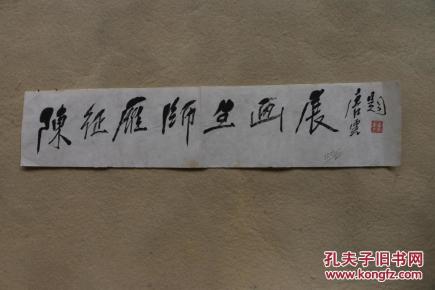 陳征雁師生画展
唐雲題
孔夫子旧书网
www.kongfz.com